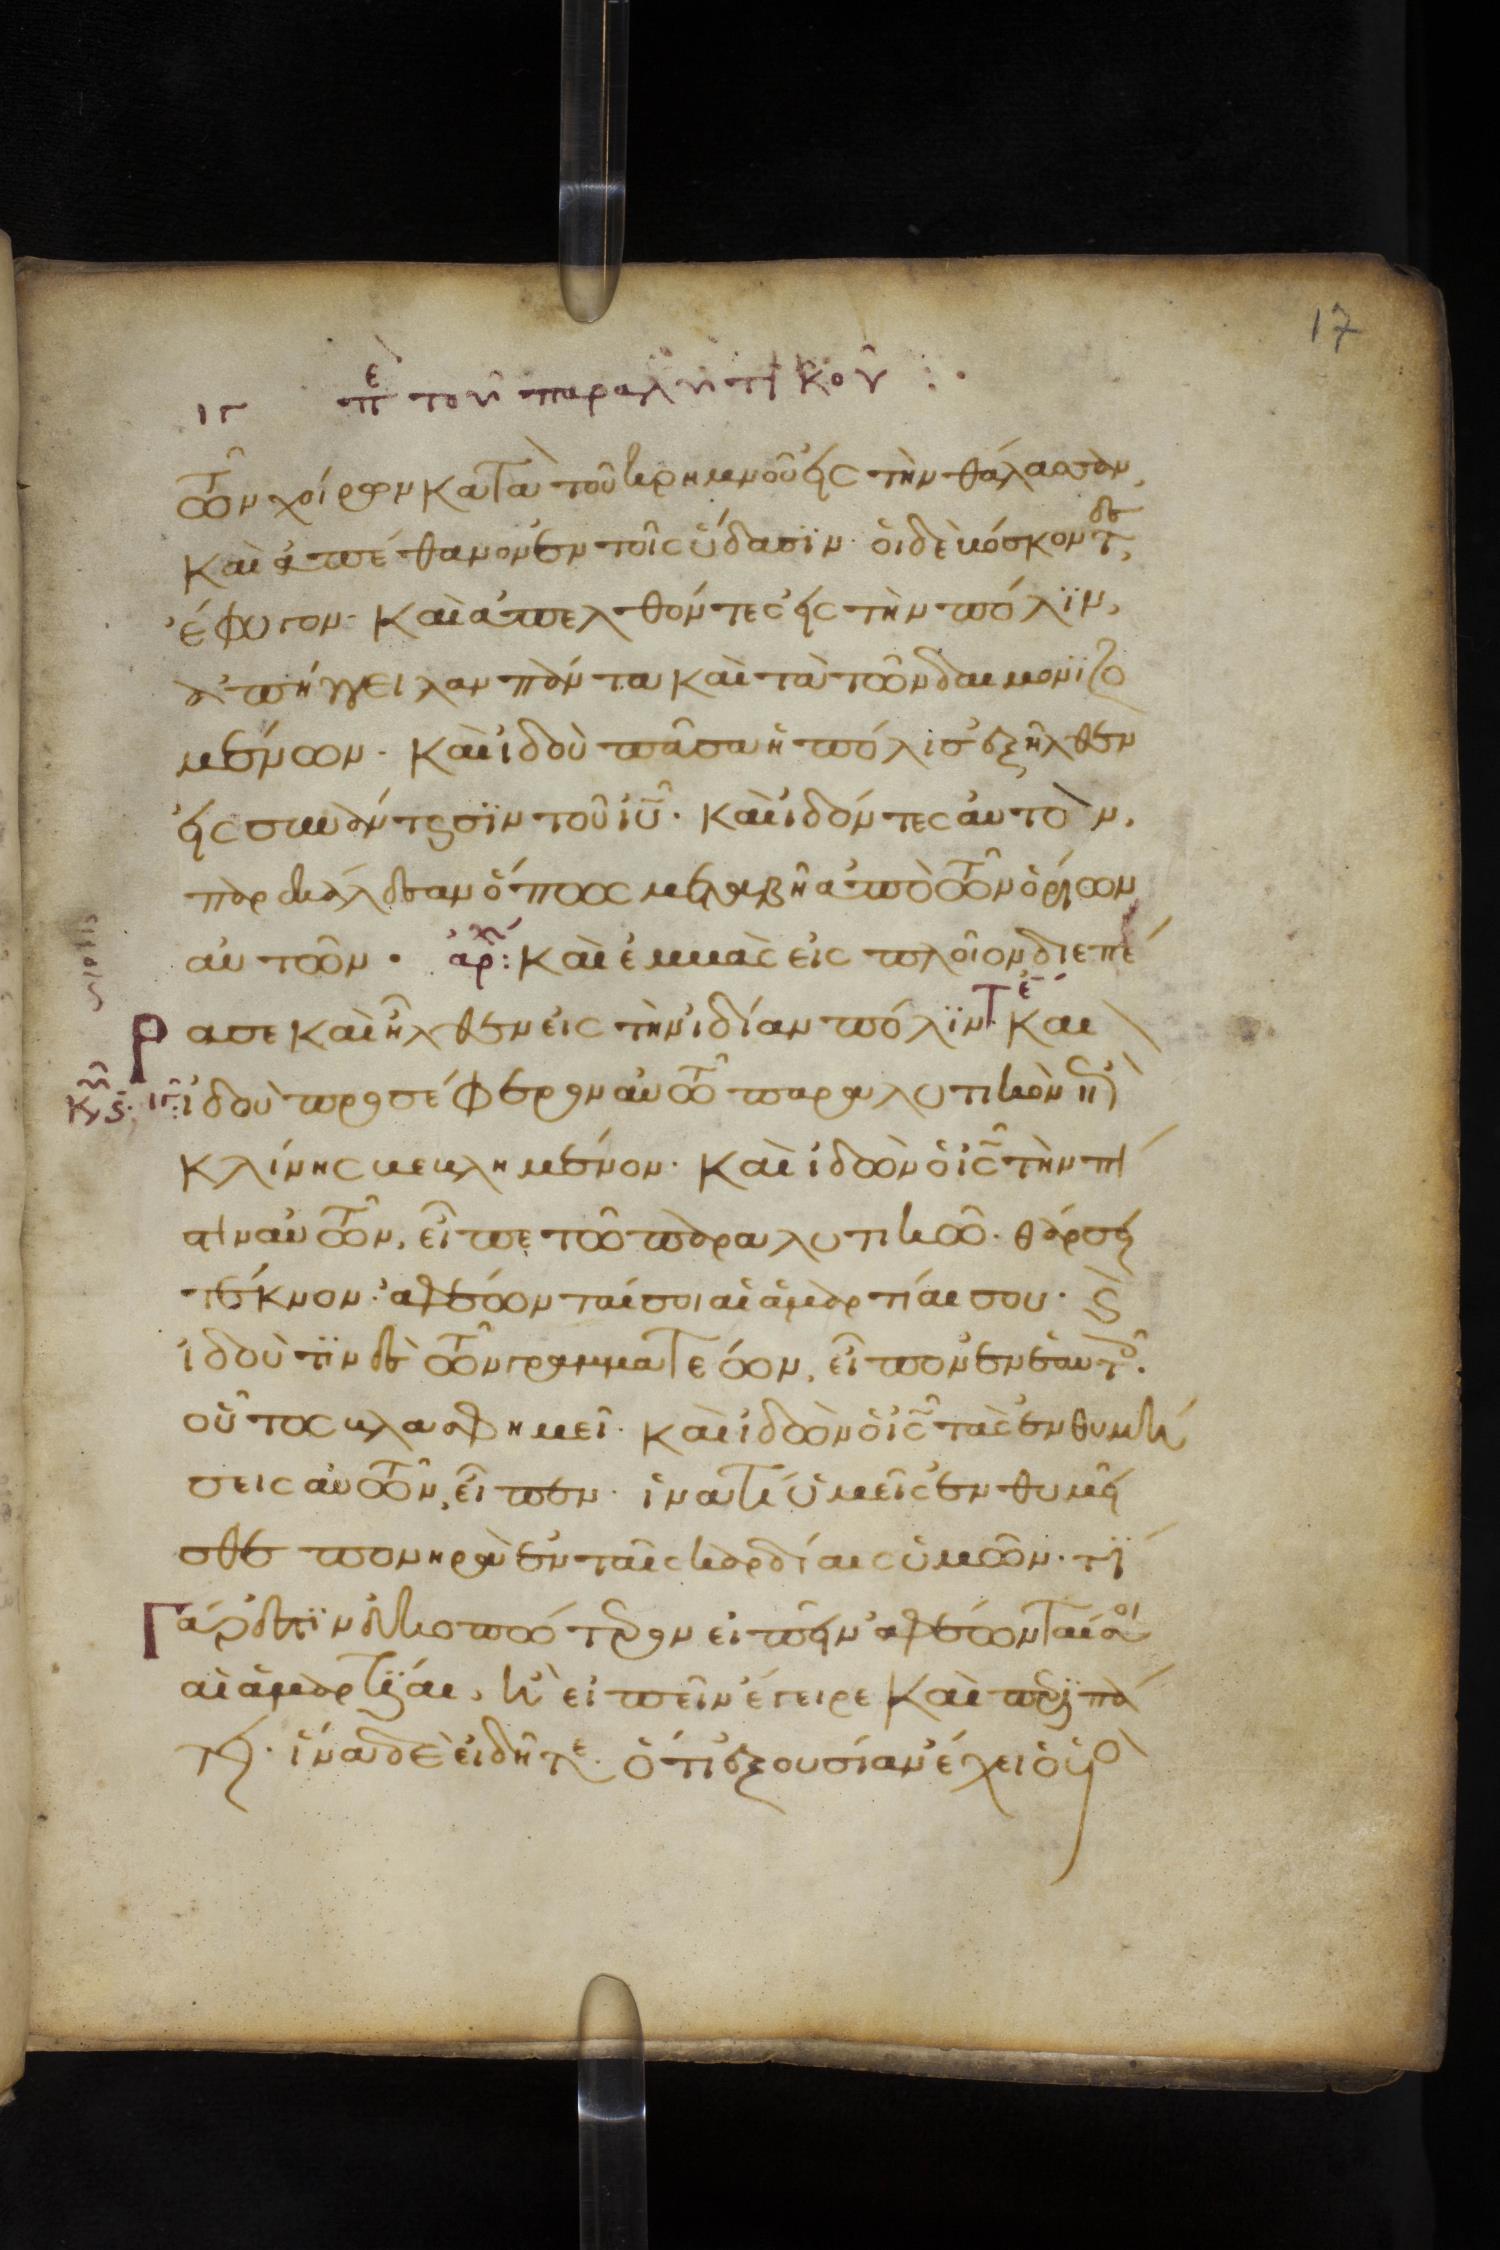 17
ιγ πε τοῦ παραλυτικοῦ :·
τῶν χοίρων κατὰ τοῦ κρημνοῦ εἰς τὴν θάλασσαν,
καὶ ἀπέθανον ἐν τοῖς ὕδασϊν· οἱ δὲ βόσκοντες
ἔφυγον· καὶ ἀπελθόντες εἰς τὴν πόλϊν,
ἀπήγγειλαν πάντα καὶ τὰ τῶν δαιμονϊζο
μένων· καὶ ἰδοὺ πᾶσα ἡ πόλις ἐξῆλθεν
εἰς συνάντησϊν τοῦ ιυ· καὶ ἰδόντες αὐτὸν,
παρεκάλεσαν ὅπως μεταβῆ ἀπὸ τῶν ὁρίων
αὐτῶν· ἀρχ: καὶ ἐμβὰς εἰς πλοῖον διεπέ
ρασε καὶ ἦλθεν εἰς τὴν ἰδίαν πόλϊν· τε καὶ
ἰδοὺ προσέφερον αὐτῶ παραλυτικὸν ἐπὶ
κλίνης βεβλημένον· καὶ ἰδὼν ὁ ις τὴν πί
στιν αὐτῶν, εἶπε τῶ παραλυτικῶ· θάρσει
τέκνον· ἀφέωνταί σοι αἱ ἁμαρτίαι σου· καὶ
ἰδοὺ τϊνὲς τῶν γραμματέων, εἶπον ἐν ἑαυτοῖς·
οὗτος βλασφημεῖ· καὶ ἰδὼν ὁ ις τὰς ἐνθυμή
σεις αὐτῶν, εἶπεν· ἱνατί ὑμεῖς ἐνθυμεῖ
σθε πονηρὰ ἐν ταῖς καρδίαις ὑμῶν· τί
γάρ ἐστϊν εὐκοπώτερον εἰπεῖν ἀφέωνταί σοι
αἱ ἁμαρτίαι, ἢ εἰπεῖν ἔγειρε καὶ περϊπά
τει· ἵνα δὲ εἰδῆτε· ὅτι ἐξουσίαν ἔχει ὁ υσ